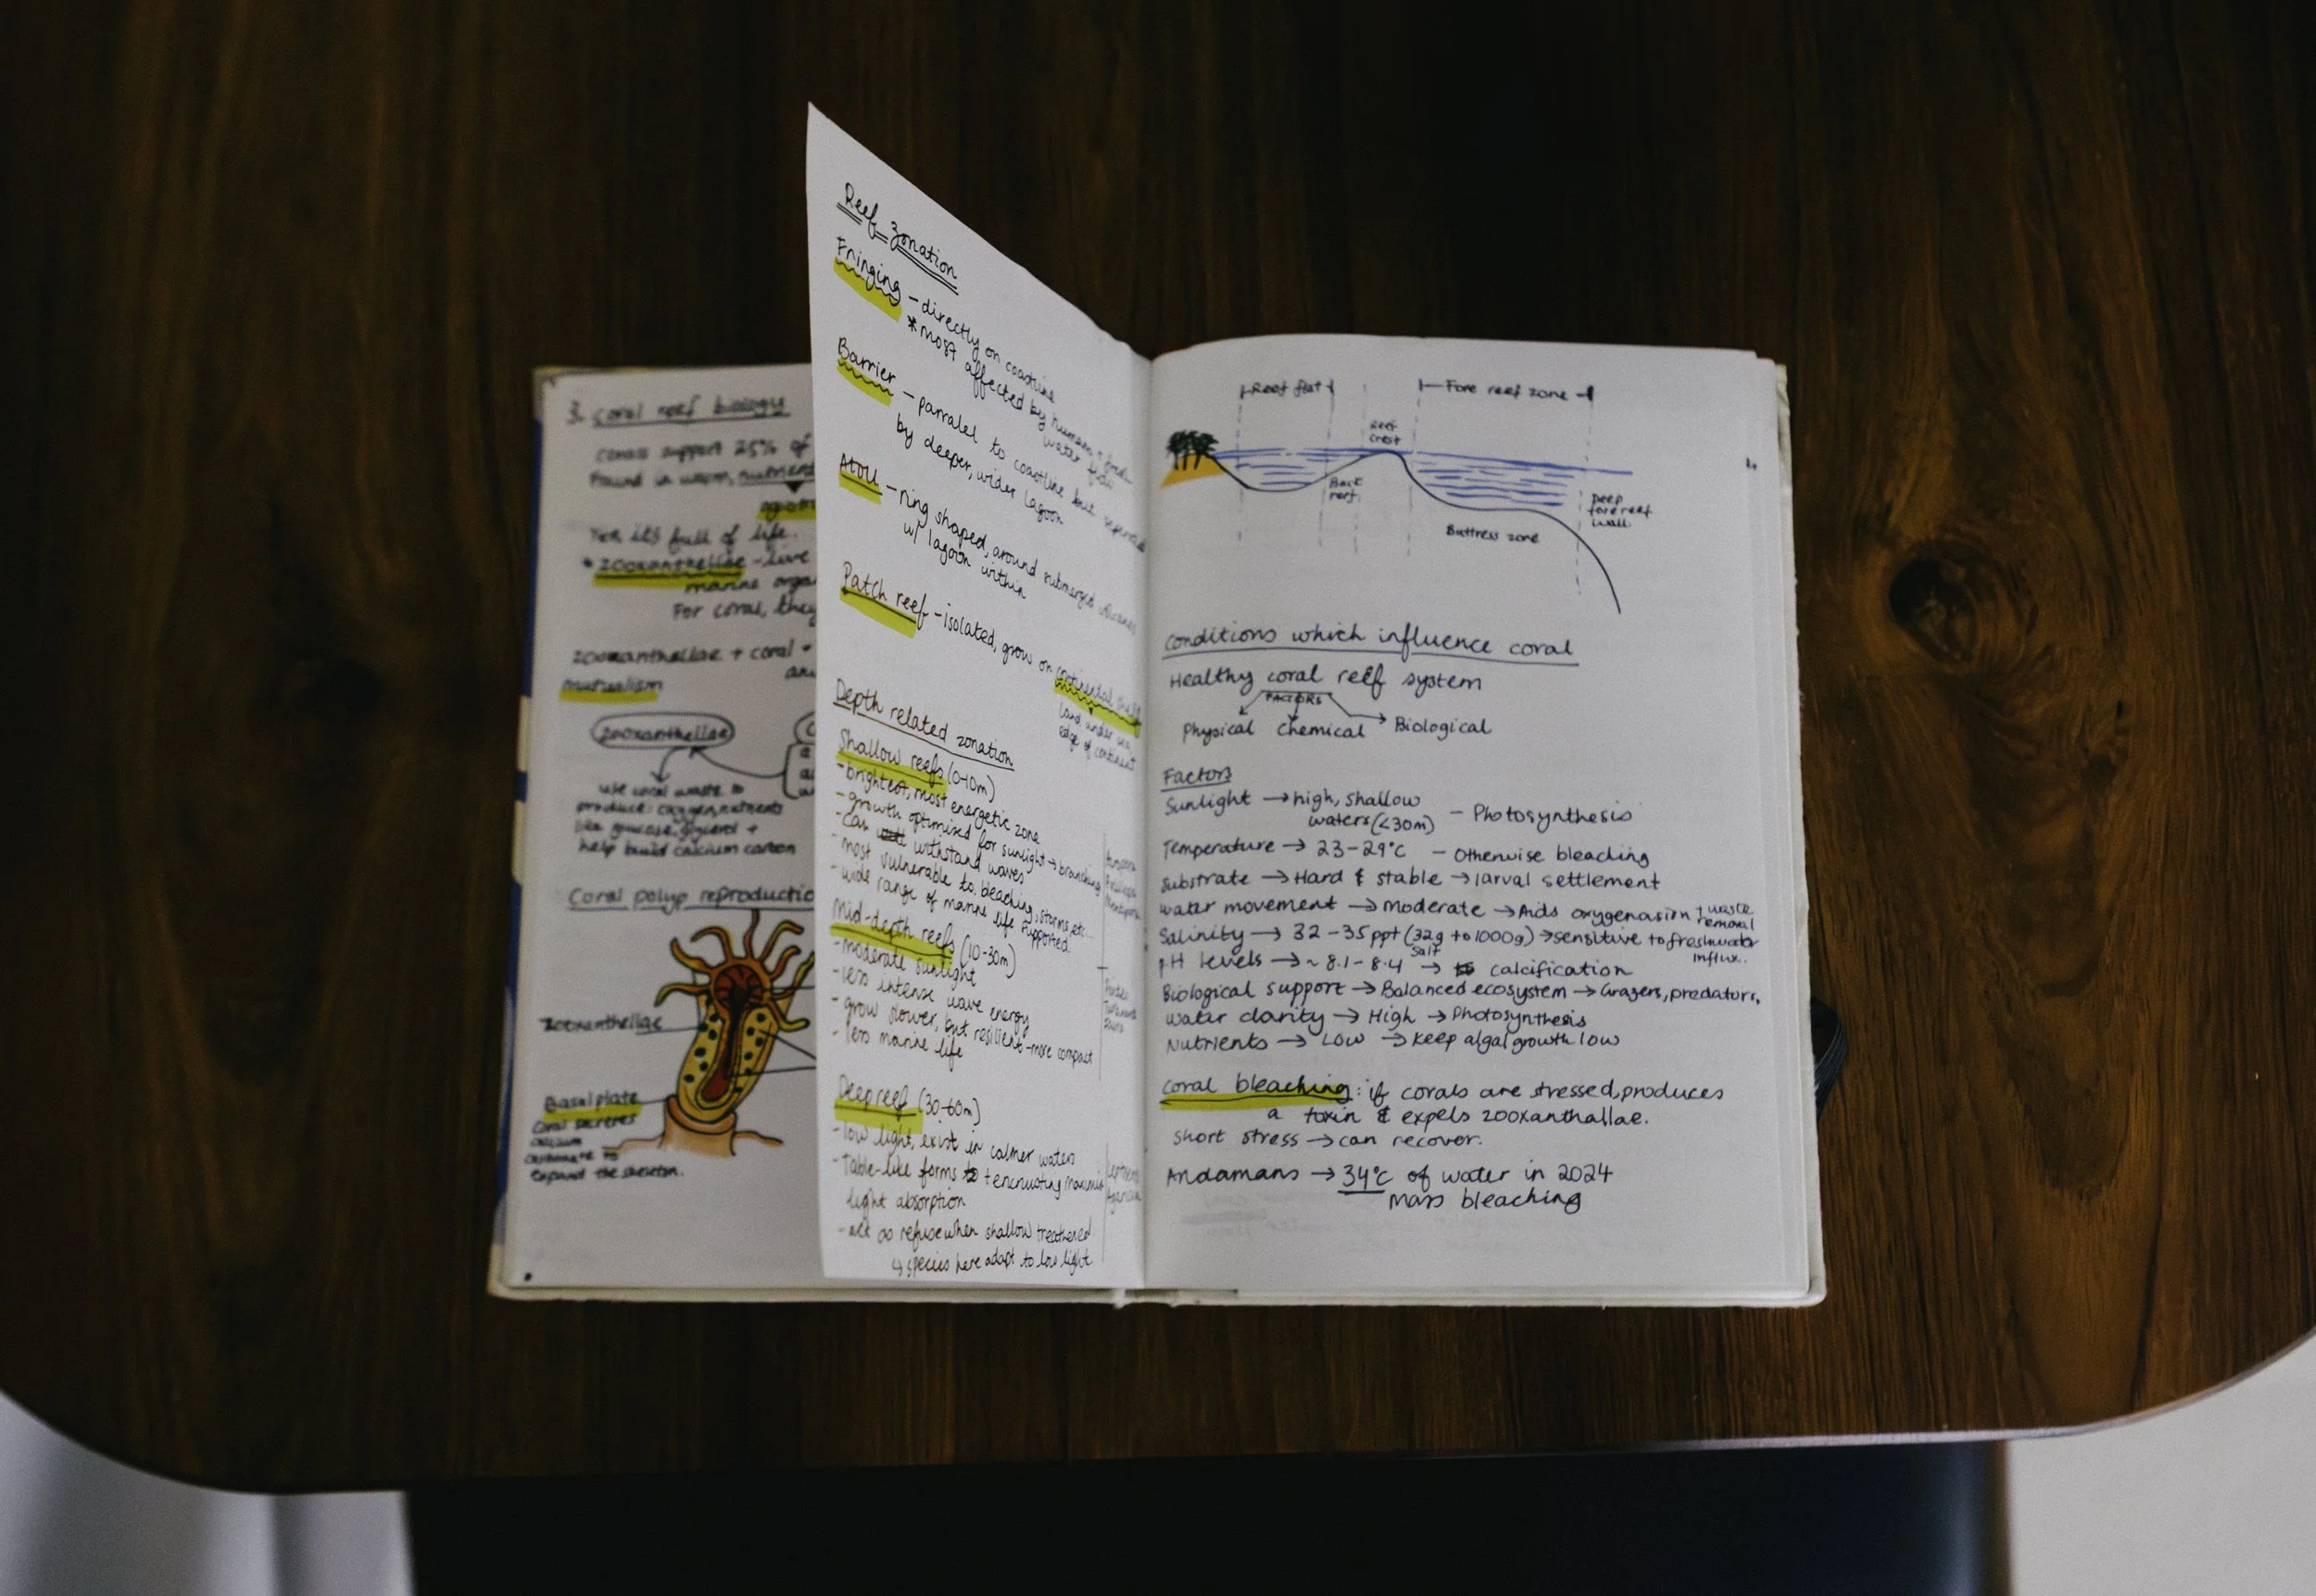 3. Coral reef biology
corals support 25% of
Found in warm, nutrient
Yet it's full of life.
* zooxanthellae - live
marine orga
For coral, they
zooxanthellae + coral =
mutualism
zooxanthellae
use coral waste to
produce: oxygen, nutrients
like glucose, glycerol +
help build calcium carbon
Coral polyp reproductio
zooxanthellae
Basal plate
Coral secretes
calcium
carbonate to
expand the skeleton.
Reef zonation
Fringing - directly on coastline
* most affected by humans + fresh
water
Barrier - parralel to coastline but seperated
by deeper, wider lagoon
Atoll - ring shaped, around submerged volcanoes
w/ lagoon within
Patch reef - isolated, grow on continental shelf
land under sea,
edge of continent
Depth related zonation
Shallow reefs (0-10m)
- brightest, most energetic zone
- growth optimised for sunlight → branching
- can withstand waves
- most vulnerable to bleaching, storms, etc.
- wide range of marine life supported
Mid-depth reefs (10-30m)
- moderate sunlight
- less intense wave energy
- grow slower, but resilient - more compact
- less marine life
Deep reef (30-60m)
- low light, exist in calmer waters
- Table-like forms + encrusting maximis
light absorption
- act as refuse when shallow treathened
↳ species here adapt to low light
Reef flat
Fore reef zone
Reef
crest
Back
reef
Deep
fore reef
wall
Buttress zone
Conditions which influence coral
Healthy coral reef system
FACTORS
Physical Chemical Biological
Factors
Sunlight → high, shallow
waters (<30m) - Photosynthesis
Temperature → 23-29°C - Otherwise bleaching
Substrate → Hard & stable → larval settlement
Water movement → Moderate → Aids oxygenasion + waste
removal
Salinity → 32-35 ppt (32g to 1000g) → sensitive to freshwater
Salt
influx.
pH levels → ~8.1-8.4 → calcification
Biological support → Balanced ecosystem → Grazers, predators,
Water clarity → High → Photosynthesis
Nutrients → Low → Keep algal growth low
Coral bleaching: if corals are stressed, produces
a toxin & expels zooxanthallae.
Short stress → can recover.
Andamans → 34°C of water in 2024
Mass bleaching